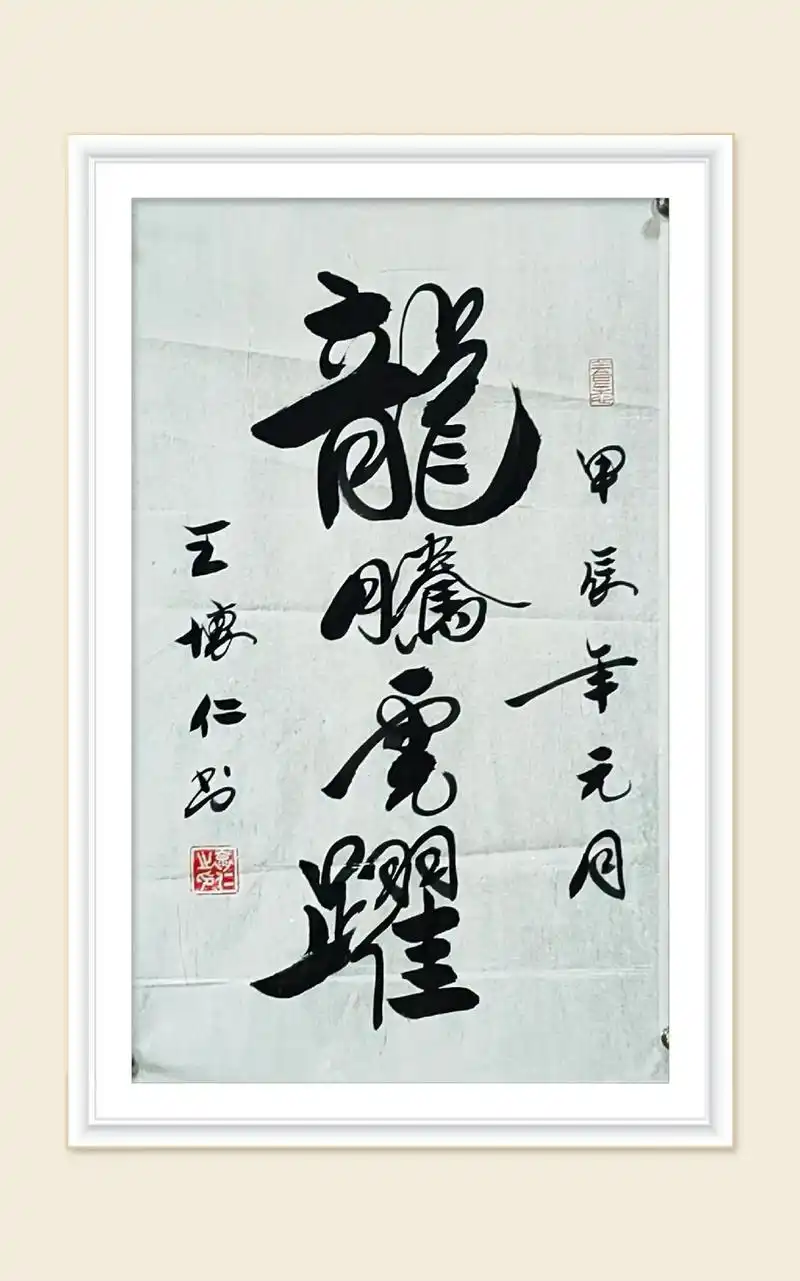 甲辰年元月
龍騰虎躍
王懷仁书